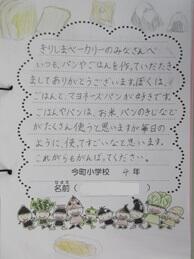 きりしまベーカリーのみなさんへ
いつも、パンやごはんを作っていただき
ましてありがとうございます。ぼくは、そ
ごはんと、マヨネーズパンが好きです。
ごはんやパンは、お米、パンのきじなど
がたくさん使うと思いますが毎日の
ように、使ってすごいなと思います。
これからもがんばってください。
今町小学校 4年
名前( )